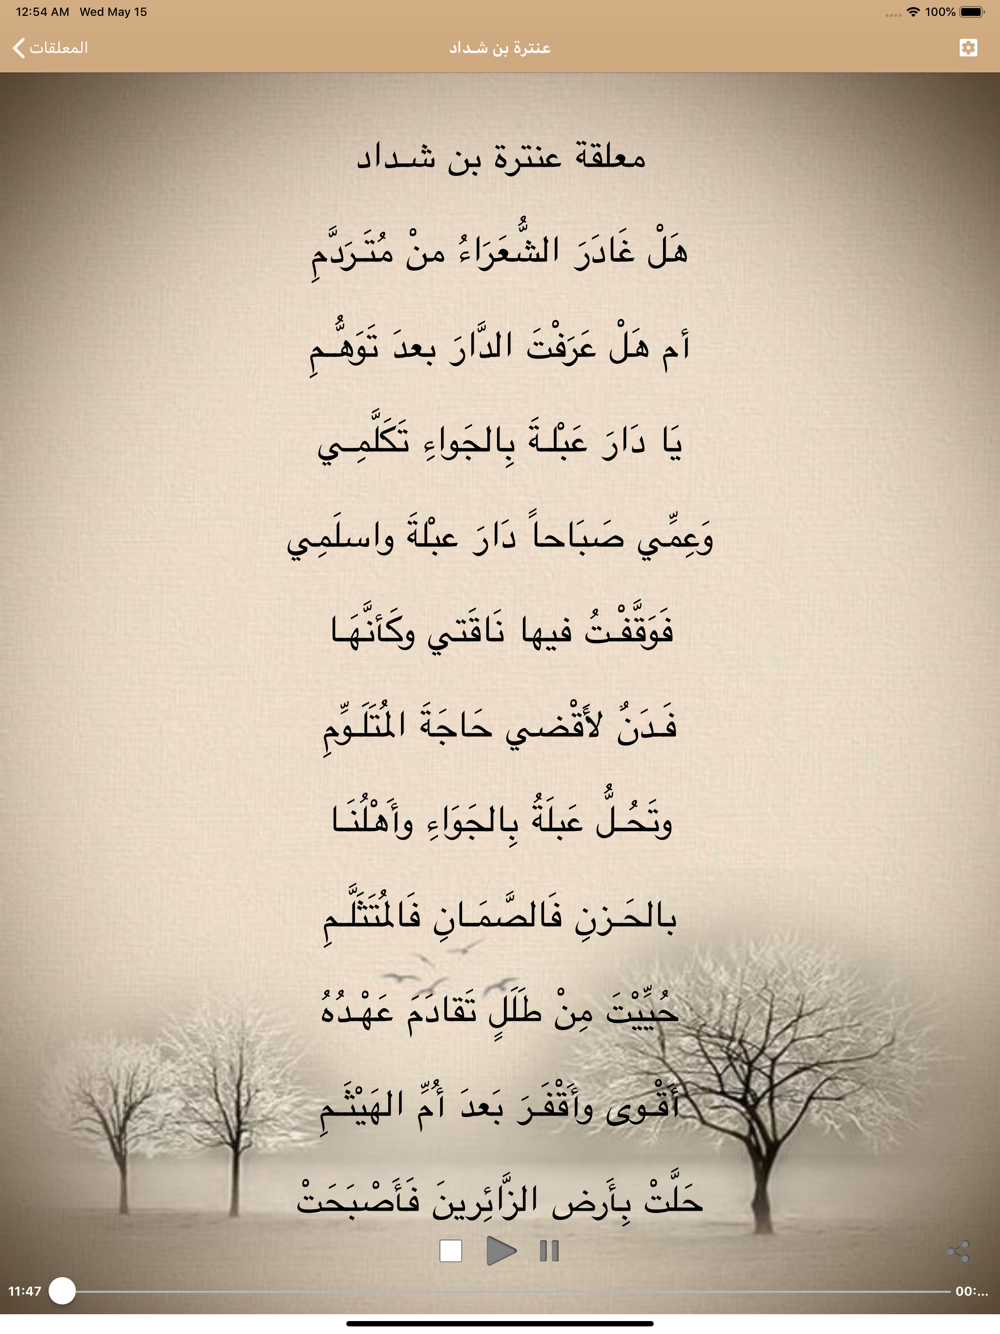 12:54 AM Wed May 15
100%
المعلقات
عنترة بن شـداد
معلقة عنترة بن شـداد
هَلْ غَادَرَ الشُّعَرَاءُ منْ مُتَـرَدَّمِ
أم هَلْ عَرَفْتَ الدَّارَ بعدَ تَوَهُّـمِ
يَا دَارَ عَبْلـةَ بِالجَواءِ تَكَلَّمِـي
وَعِمِّـي صَبَاحاً دَارَ عبْلةَ واسلَمِي
فَوَقَّفْـتُ فيها نَاقَتـي وكَأنَّهَـا
فَـدَنٌ لأَقْضـي حَاجَةَ المُتَلَـوِّمِ
وتَحُـلُّ عَبلَةُ بِالجَوَاءِ وأَهْلُنَـا
بالحَـزنِ فَالصَّمَـانِ فَالمُتَثَلَّـمِ
حُيِّيْتَ مِنْ طَلَلٍ تَقادَمَ عَهْـدُهُ
أَقْـوى وأَقْفَـرَ بَعدَ أُمِّ الهَيْثَـمِ
حَلَّتْ بِأَرض الزَّائِرينَ فَأَصْبَحَتْ
11:47
00:...